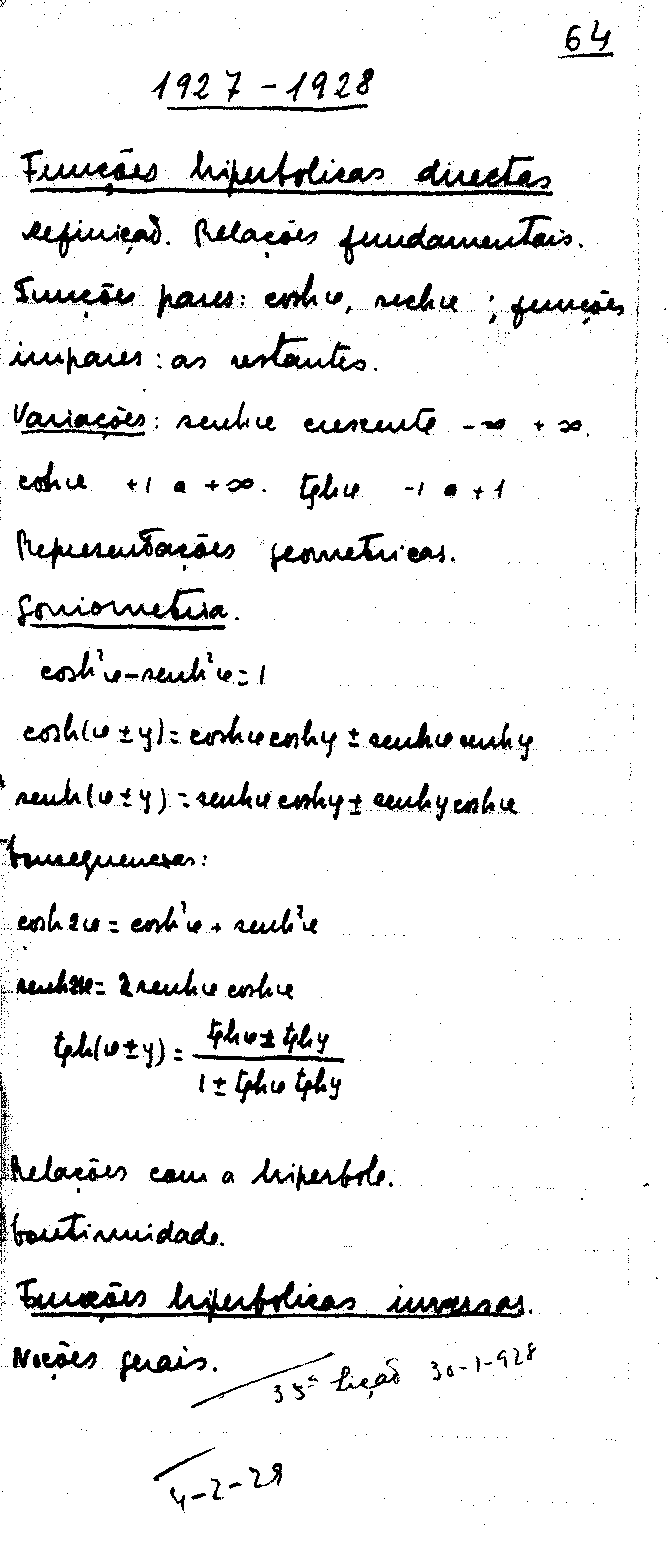 64
1927 - 1928
Funções hiperbolicas directas
Definição. Relações fundamentais.
Funções pares: coshx, sechx ; funções
impares: as restantes.
Variações: senhx crescente -∞ +∞.
coshx +1 a +∞. tghx -1 a +1
Representações geometricas.
Goniometria.
cosh²x-senh²x=1
cosh(x±y)=coshxcoshy±senhxsenhy
senh(x±y)=senhxcoshy±senhycoshx
Consequencias:
cosh2x=cosh²x+senh²x
senh2x=2senhxcoshx
tgh(x±y)=(tghx±tghy)/(1±tghx tghy)
Relações com a hiperbole.
Continuidade.
Funções hiperbolicas inversas.
Noções gerais.
35ª lição 30-1-928
4-2-28